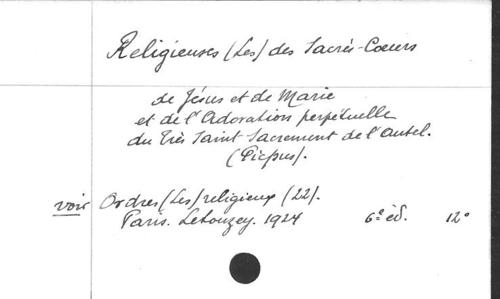 Religieuses (Les) des Sacrés-Coeurs
de Jésus et de Marie
et de l'Adoration perpétuelle
du Très Saint Sacrement de l'Autel.
(Picpus).
voir Ordres (Les) religieux (22).
Paris. Letouzey. 1924 6e éd. 12°